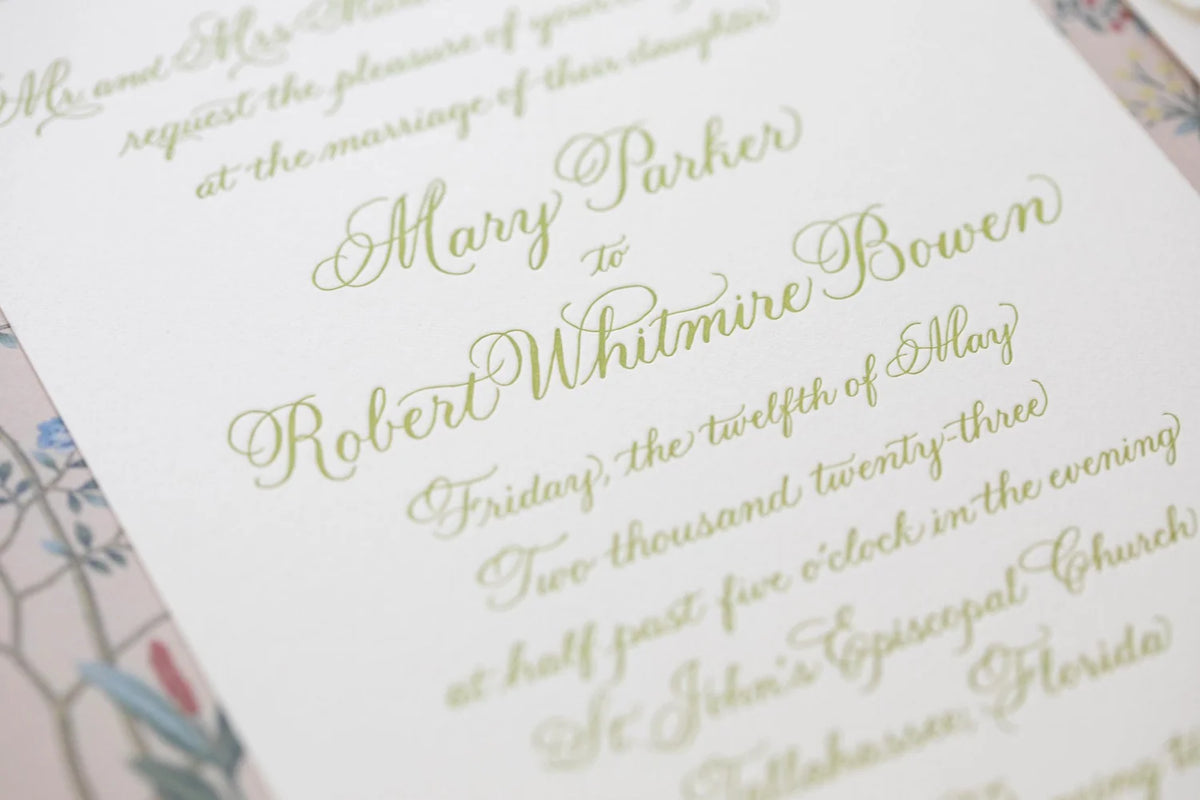 Mr. and Mrs.
request the pleasure of your
at the marriage of their daughter
Mary Parker
to
Robert Whitmire Bowen
Friday, the twelfth of May
Two thousand twenty-three
at half past five o'clock in the evening
St. John's Episcopal Church
Tallahassee, Florida